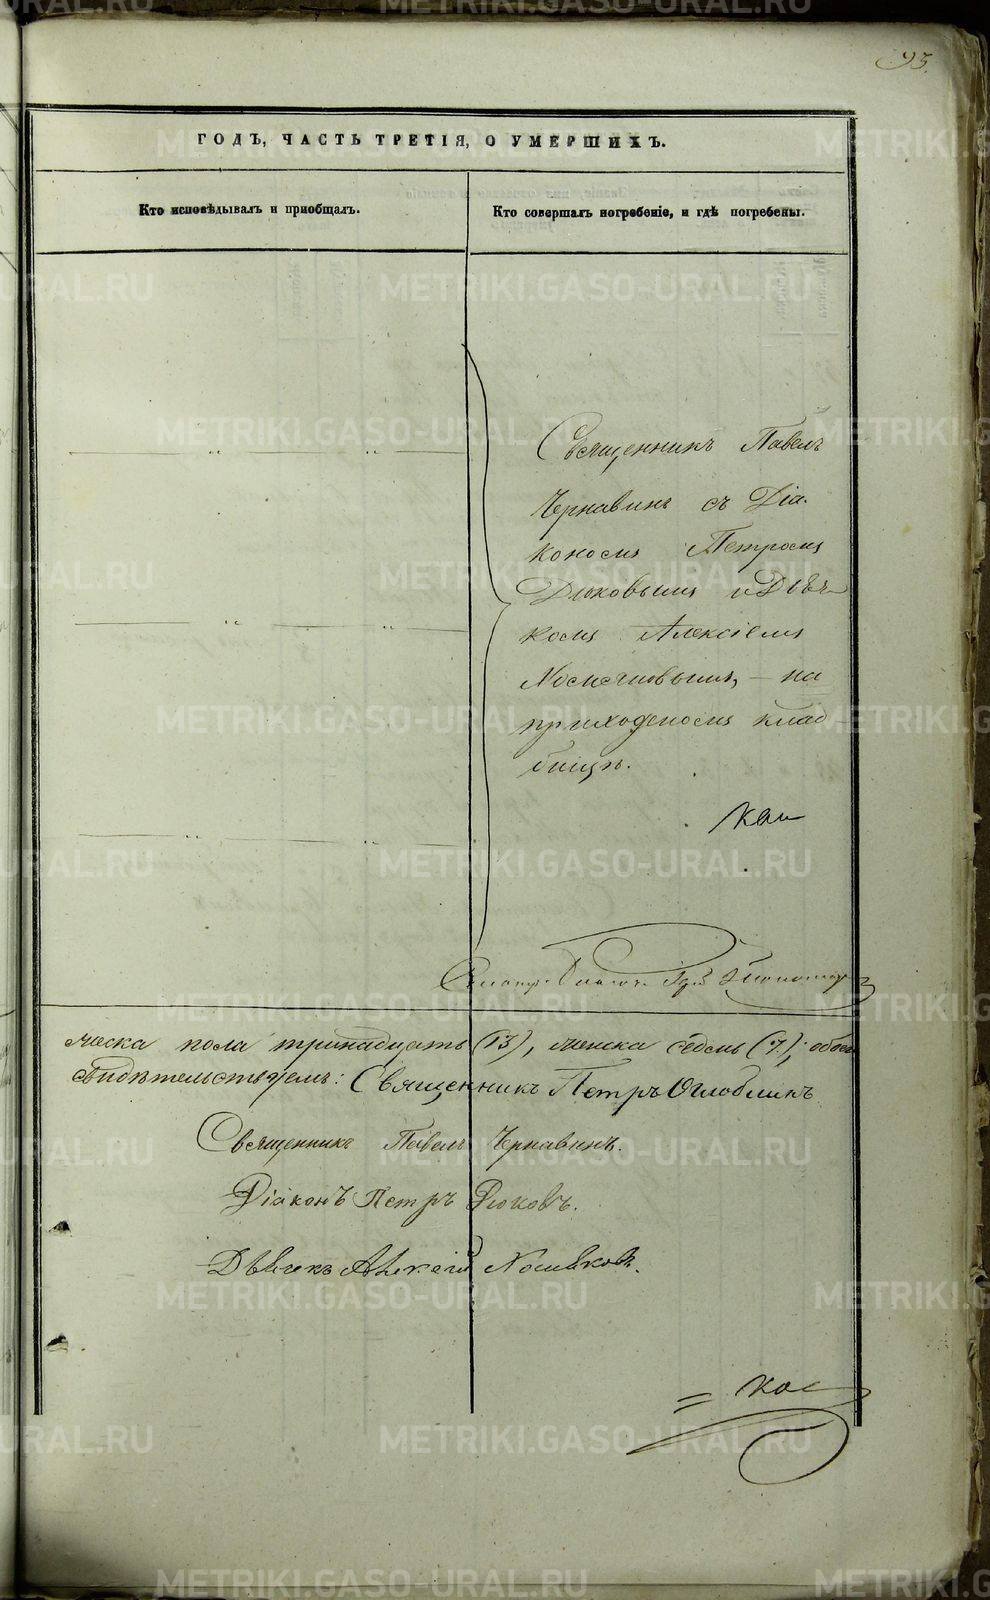 93.
ГОДЪ, ЧАСТЬ ТРЕТІЯ, О УМЕРШИХЪ.
Кто исповѣдывалъ и пріобщалъ.
Кто совершалъ погребеніе, и гдѣ погребены.
Священникъ Павелъ
Чернавинъ съ Діа-
кономъ Петромъ
Дюковымъ и Дьяч-
комъ Алексіемъ
на
приходскомъ клад-
бищѣ.
мужеска пола тринадцать (13), женска седмь (7);
свидѣтельствуемъ: Священникъ Петръ Оглоблинъ
Священникъ Павелъ Чернавинъ.
Діаконъ Петръ Дюковъ.
Дьячекъ Алексій
METRIKI.GASO-URAL.RU